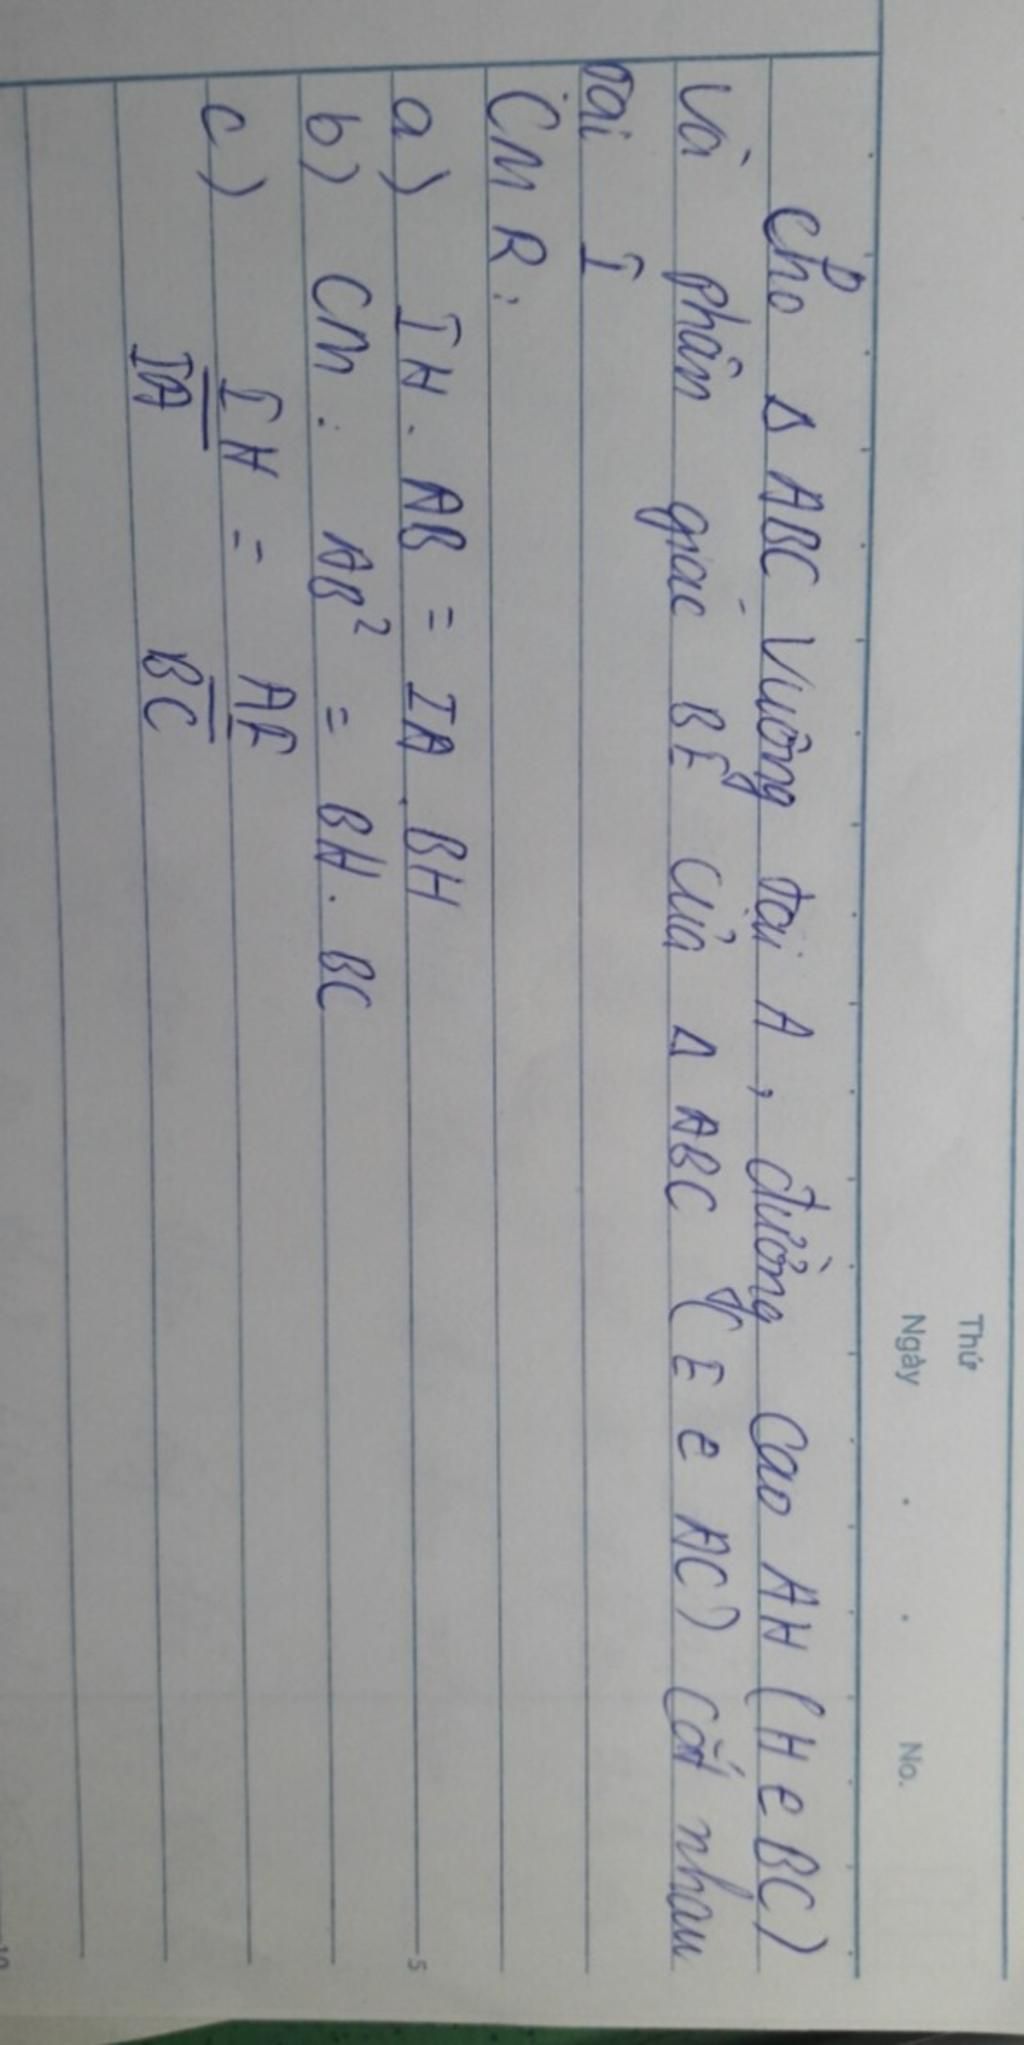 Thứ
Ngày . . No.
Cho Δ ABC Vuông tại A, đường Cao AH (H e BC)
Và phân giác BE của Δ ABC (E e AC) Cắt nhau
tại I
CMR:
a) IH. AB = IA. BH
b) CM: AB² = BH. BC
c) IH = AE
IA BC
5
10